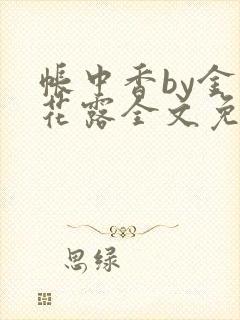 帐中香by金
花露全文免
思绿